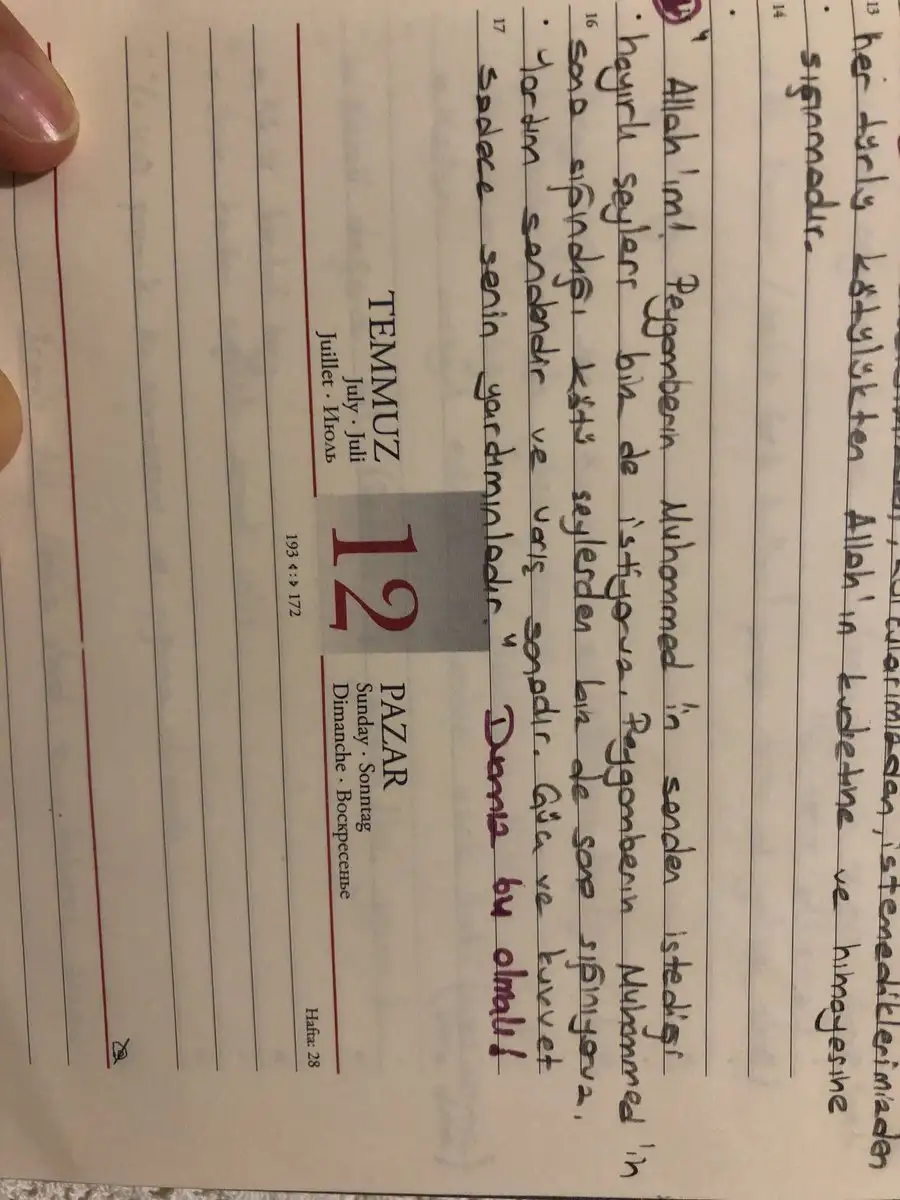 istemediklerimizden
13 her türlü kötülükten Allah'ın kudretine ve himayesine
sığınmadır.
14
" Allah'ım! Peygamberin Muhammed'in senden istediği
hayırlı şeyleri biz de istiyoruz. Peygamberin Muhammed'in
16 sana sığındığı kötü şeylerden biz de sana sığınıyoruz.
Yardım sendendir ve varış sanadır. Güç ve kuvvet
17 sadece senin yardımınladır." Duamız bu olmalı!
TEMMUZ
July · Juli
Juillet · Июль
12
193 <:> 172
PAZAR
Sunday · Sonntag
Dimanche · Воскресенье
Hafta: 28